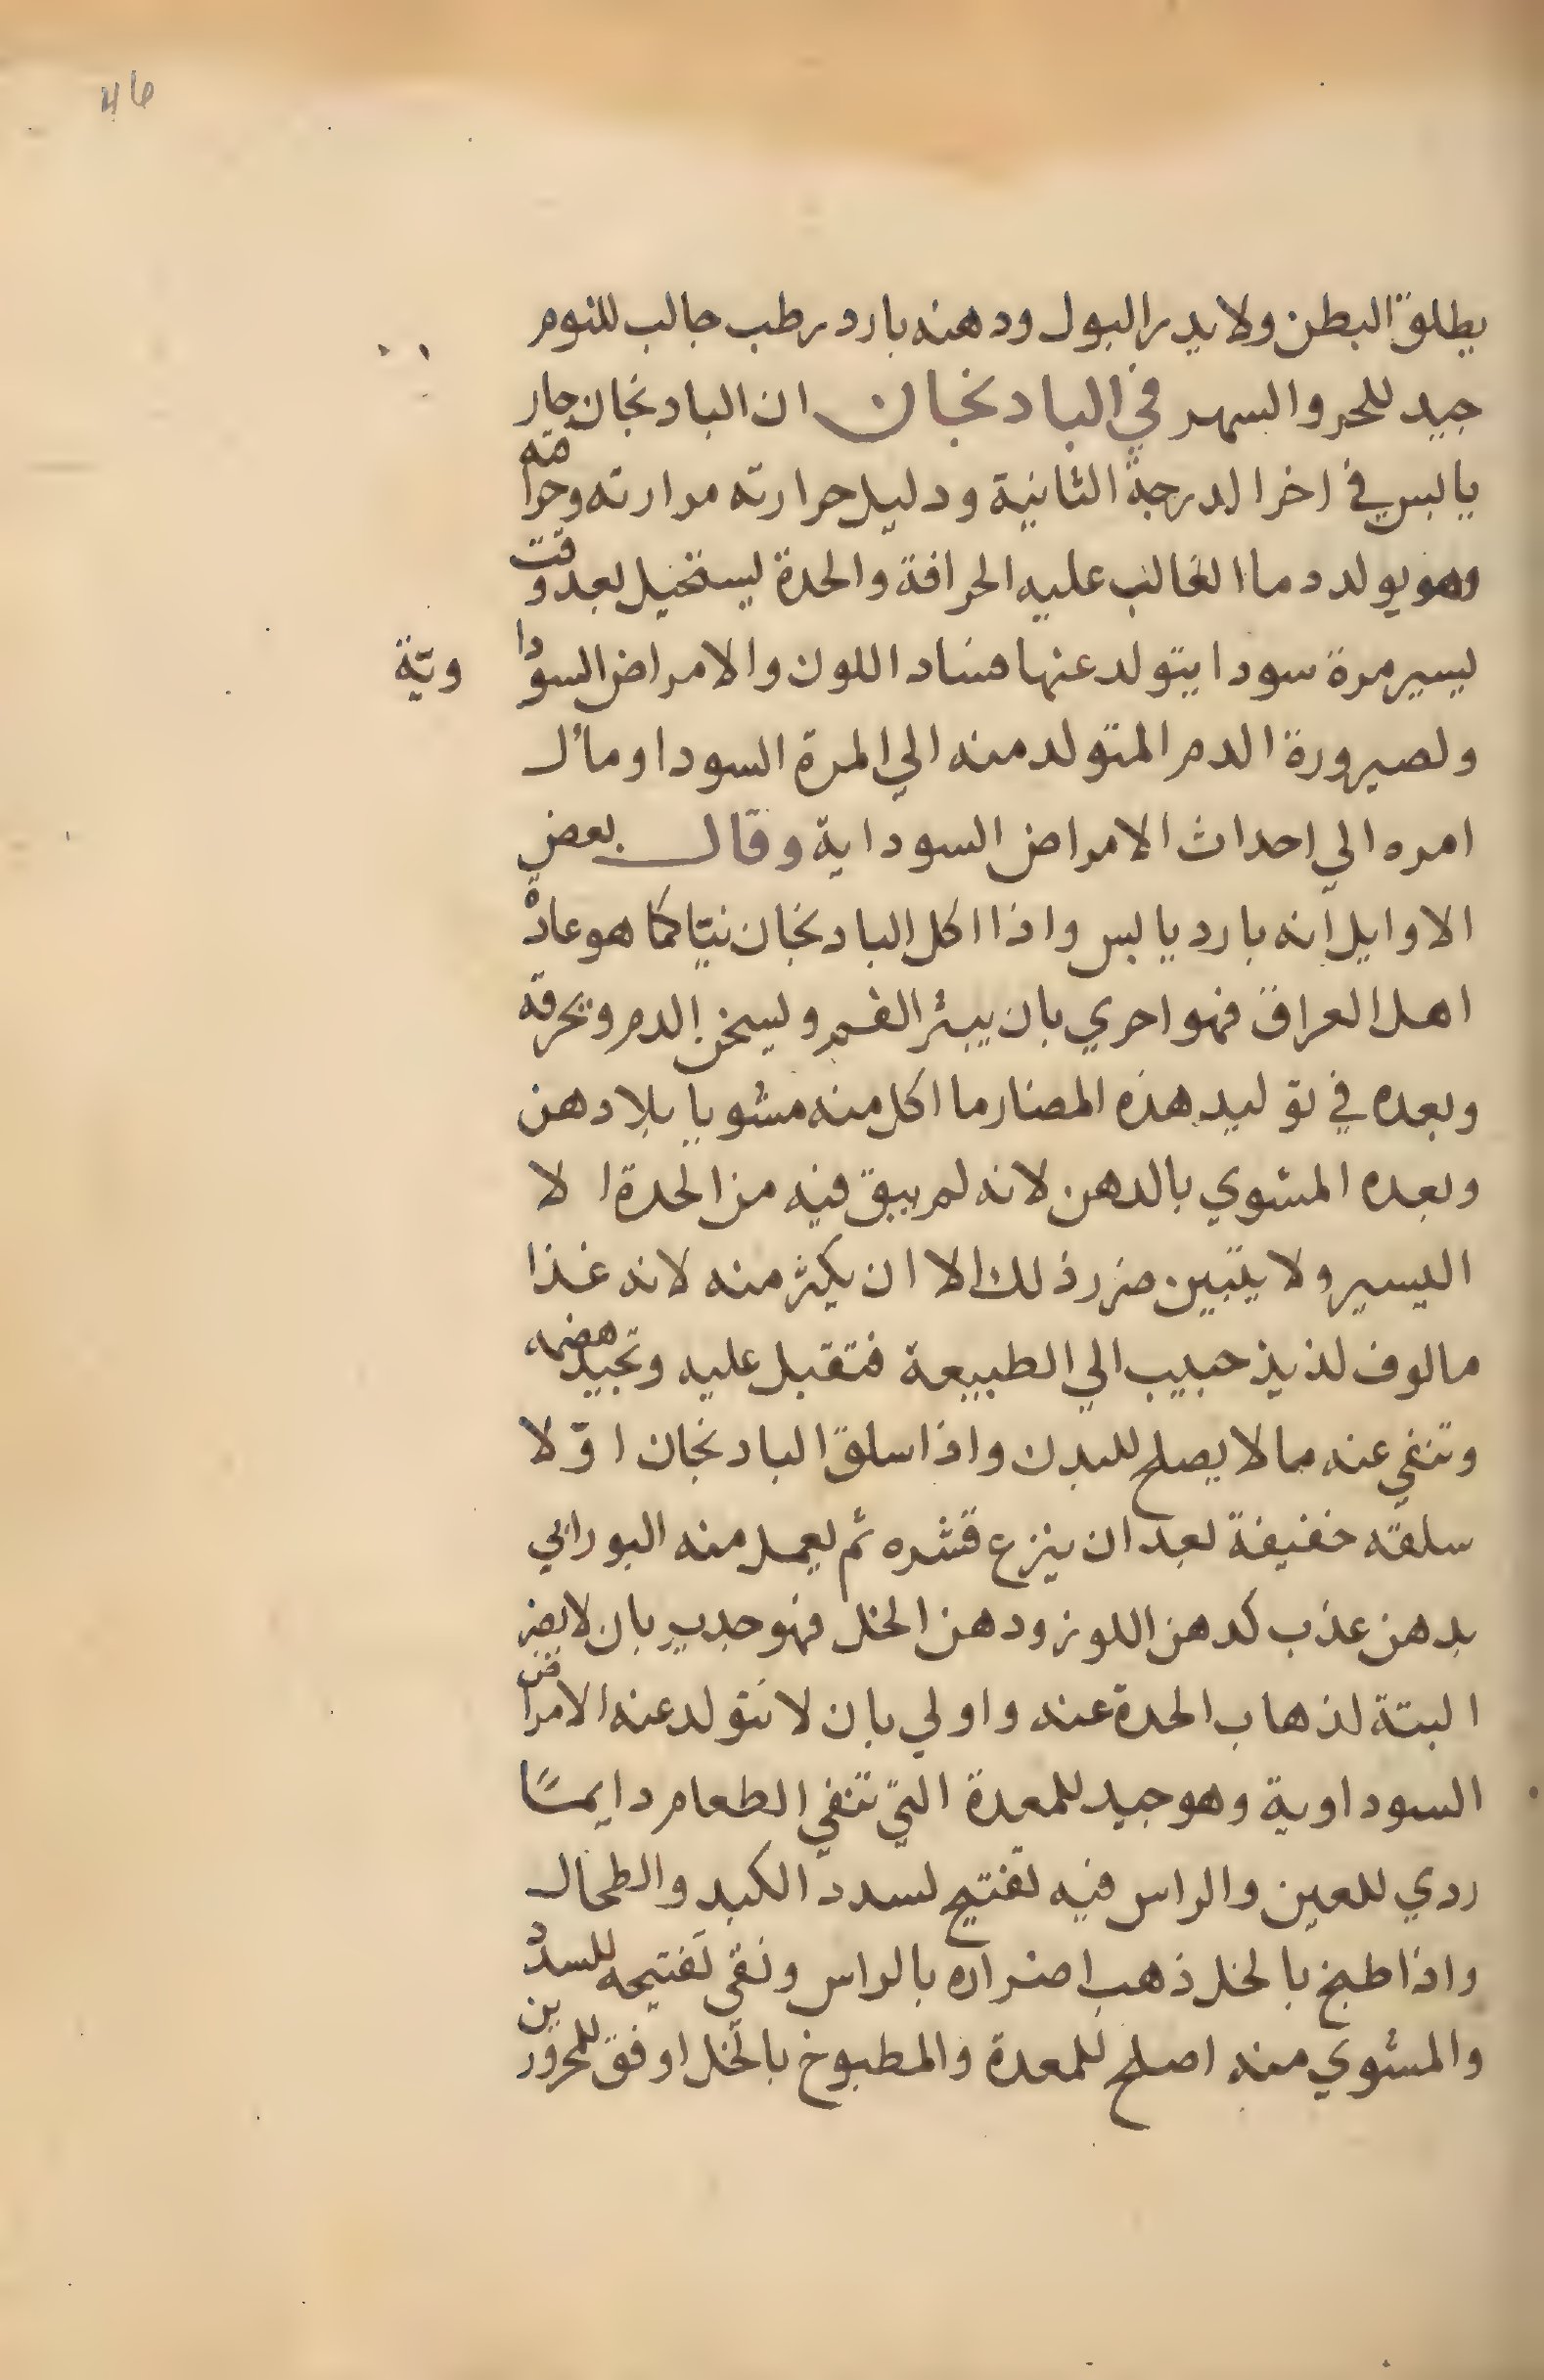 46
يطلق البطن ولا يدر البول ودهنه بارد رطب جالب للنوم
جيد للحر والسهر في البادنجان ان البادنجان حار
يابس في اخر الدرجة الثانية ودليل حرارته مرارته وحرافته
وهو يولد دما الغالب عليه الحرافة والحدة يستحيل بعد وقت
يسير مرة سودا يتولد عنها فساد اللون والامراض السوداوية
ولصيرورة الدم المتولد منه الي المرة السودا ومأل
امره الي احداث الامراض السوداية وقال بعض
الاوايل انه بارد يابس واذا اكل البادنجان نيّا كما هو عادة
اهل العراق فهو احري بان يبثر الفم ويسخن الدم ويحرقه
وبعده في توليد هذه المضار ما اكل منه مشويا بلا دهن
وبعده المشوي بالدهن لانه لم يبق فيه من الحدة الا
اليسير ولا يتبين ضرر ذلك الا ان يكثر منه لانه غذا
مالوف لذيذ حبيب الي الطبيعة فتقبل عليه وتجيد هضمه
وتنفي عنه مما لا يصلح للبدن واذا سلق البادنجان اوّلا
سلقه خفيفة بعد ان ينزع قشره ثم يعمل منه البوراني
بدهن عذب كدهن اللوز ودهن الخل فهو جدير بان لا يضر
البتة لذهاب الحدة عنه واولي بان لا تتولد عنه الامراض
السوداوية وهو جيد للمعدة التي تنفي الطعام دايمًا
ردي للعين والراس فيه تفتيح لسدد الكبد والطحال
واذا طبخ بالخل ذهب اضراره بالراس ونقي تفتيحه للسدد
والمشوي منه اصلح للمعدة والمطبوخ بالخل اوفق للمحرورين